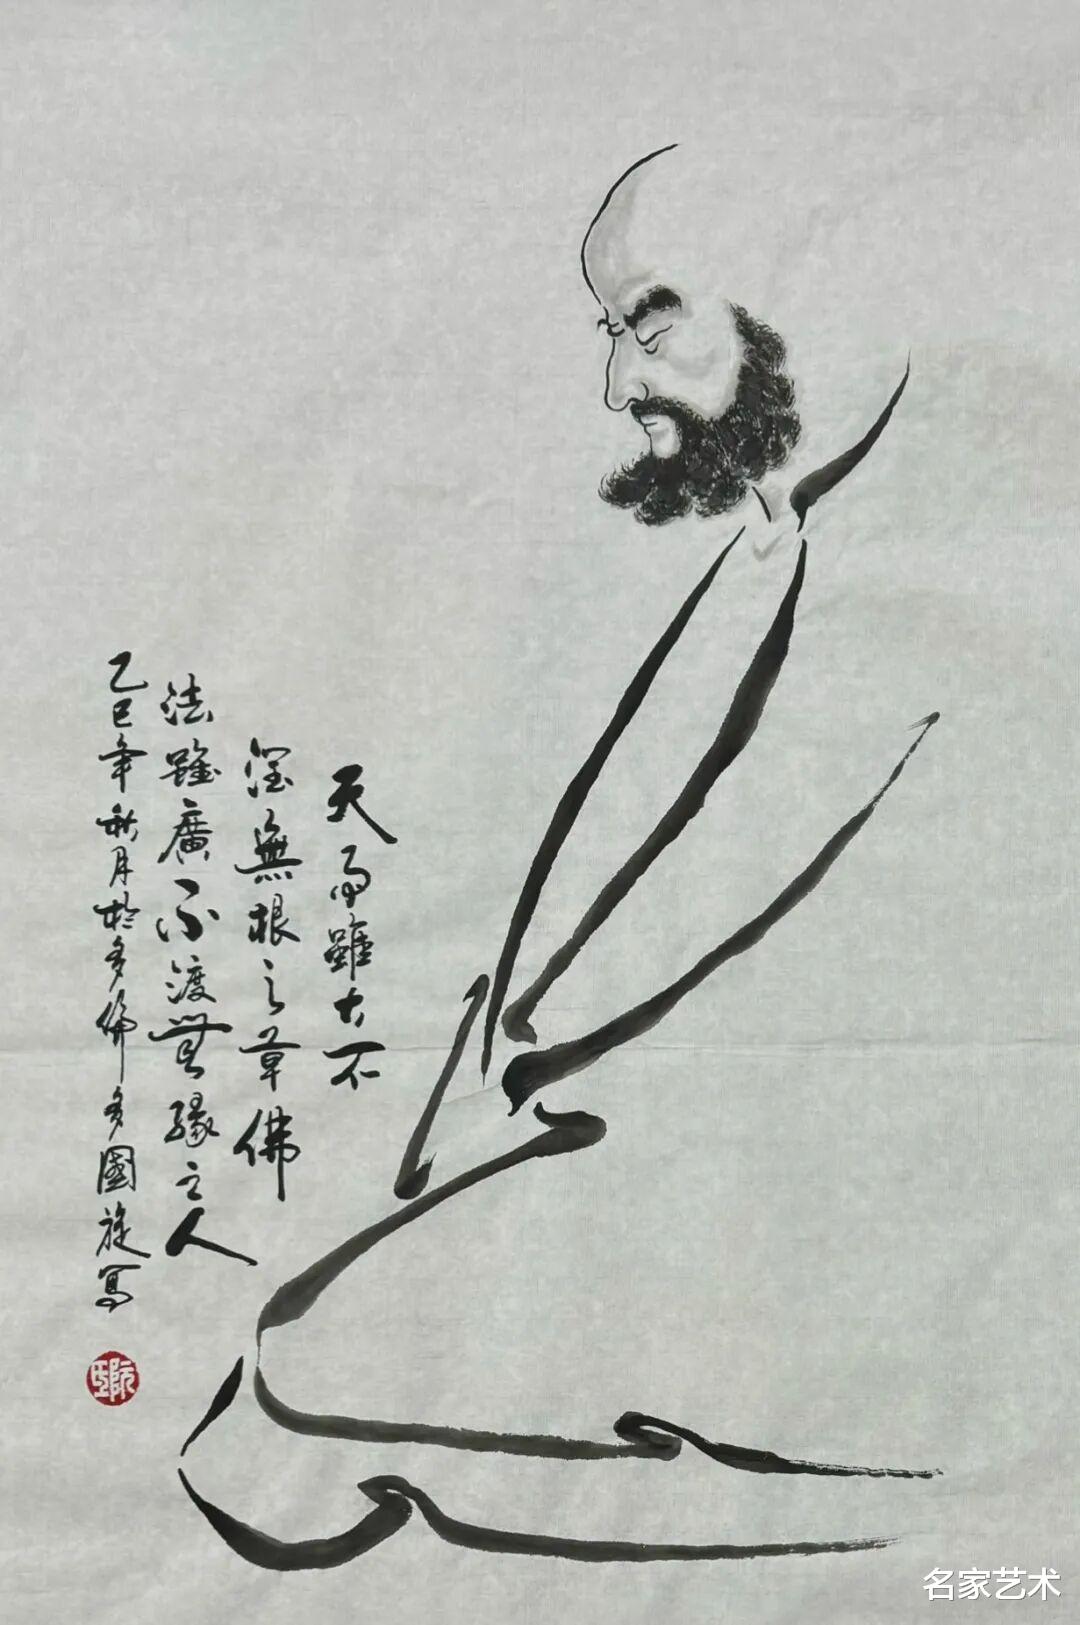 天雨雖大不
潤無根之草佛
法雖廣不渡無緣之人
乙巳年秋月於多倫多國旋寫
名家艺术